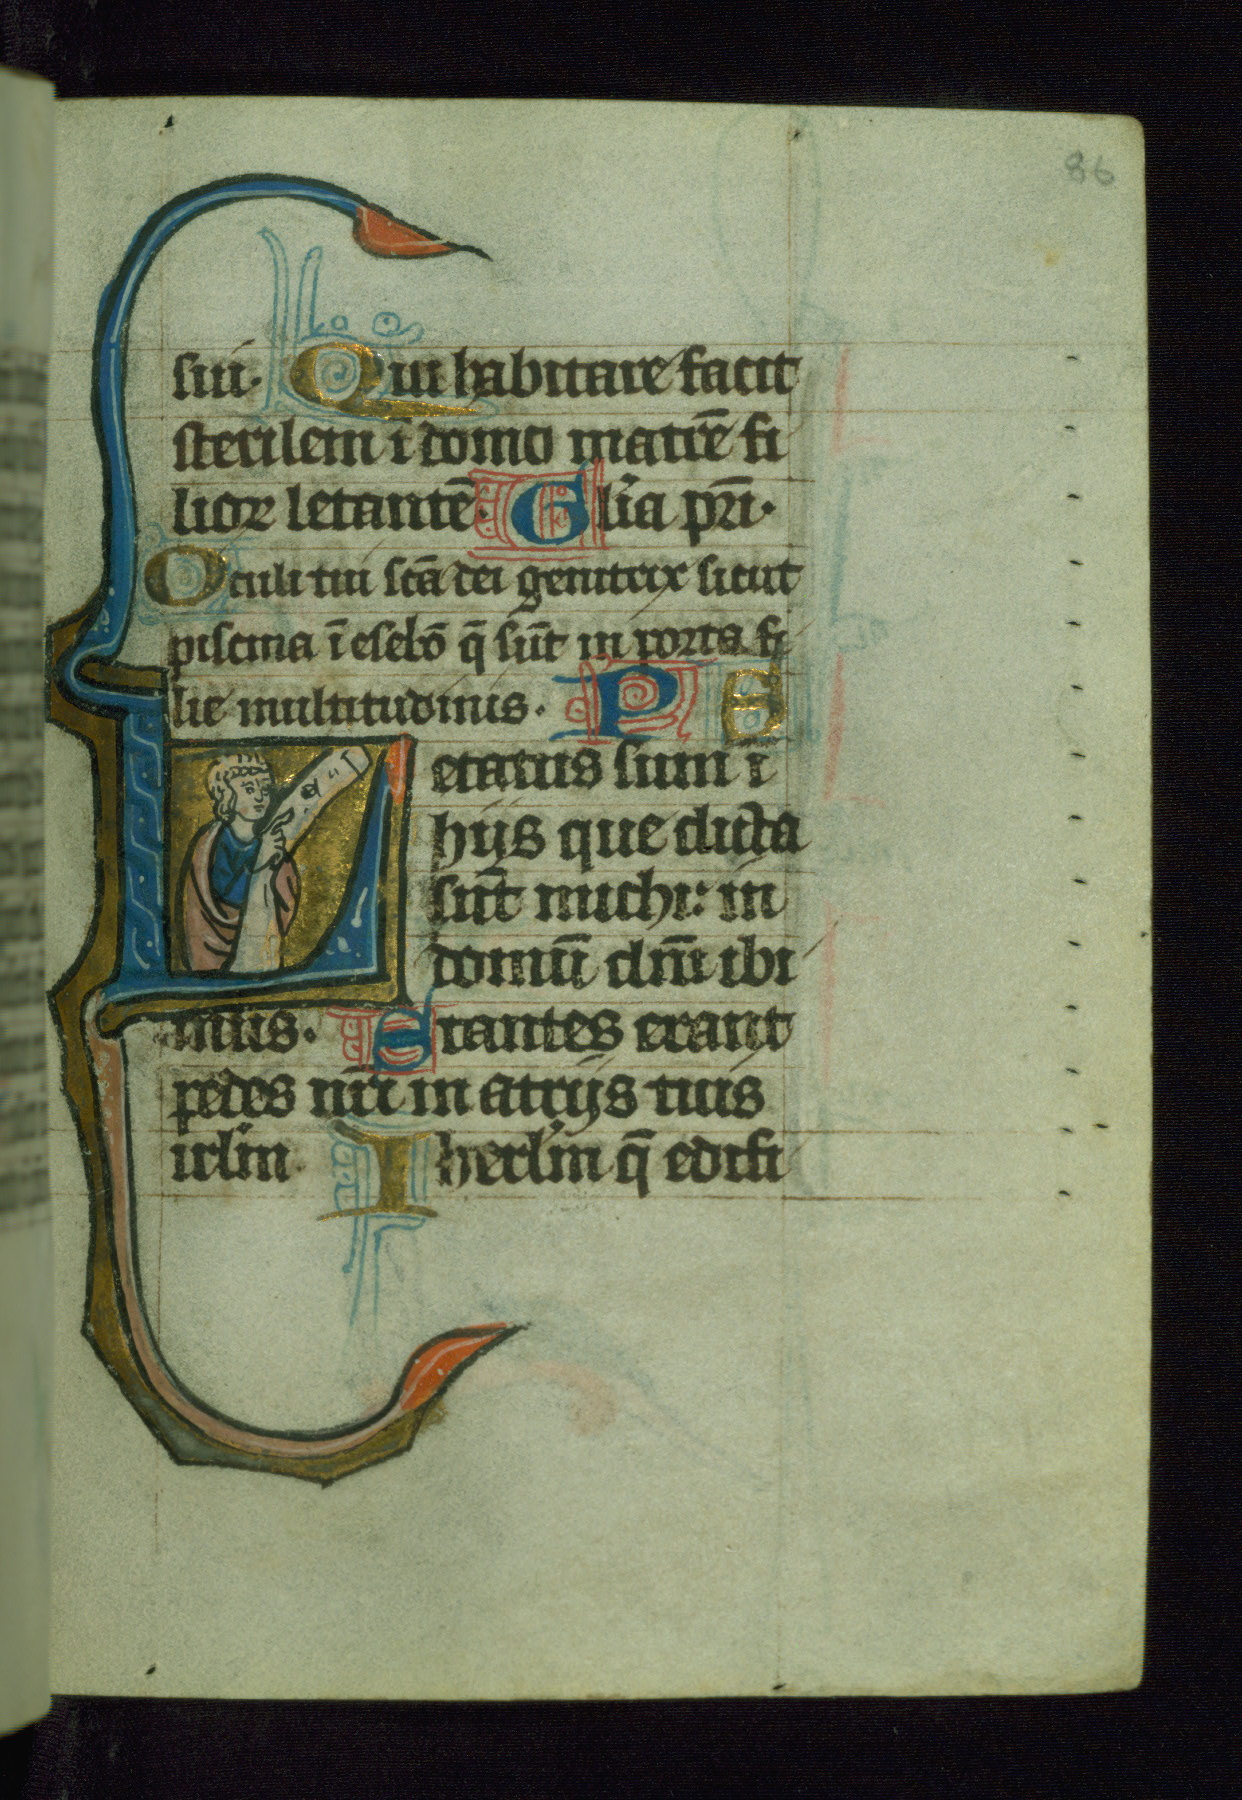 86
sui. Qui habitare facit
sterilem ī domo matrē fi
lioꝝ letantē. Glia pri.
Oculi tui scā dei genitrix sicut
piscina ī esebō q̄ sūt in porta fi
lie multitudinis. P S
Letatus sum ī
hijs que dicta
sūt michi: in
domū dnī ibi
mus. Stantes erant
pedes nri in atrijs tuis
irlm Iherlm q̄ edifi